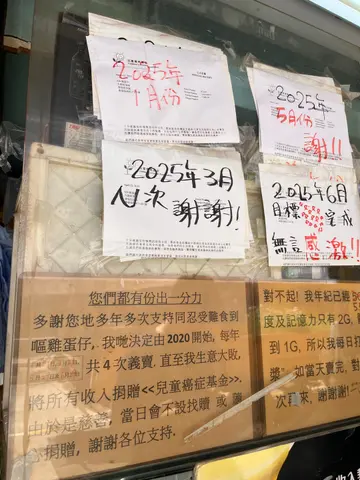 2025年
1月份
2025年
5月份
謝!!
2025年3月
N次 謝謝!!
2025年6月
目標 完成
無言 感激!!
你們都有份出一分力
多謝您地多年多次支持同忍受難食到
嘔雞蛋仔, 我哋決定由 2020 開始, 每年
共 4 次義賣. 直至我生意大敗,
將所有收入捐贈<<兒童癌症基金>>.
由於是慈善, 當日會不設找贖 或
捐贈, 謝謝各位支持.
對不起! 我年紀已經
度及記憶力只有 2G,
到 1G, 所以我每日
獎" 如當天賣完, 對
次再來, 謝謝謝!